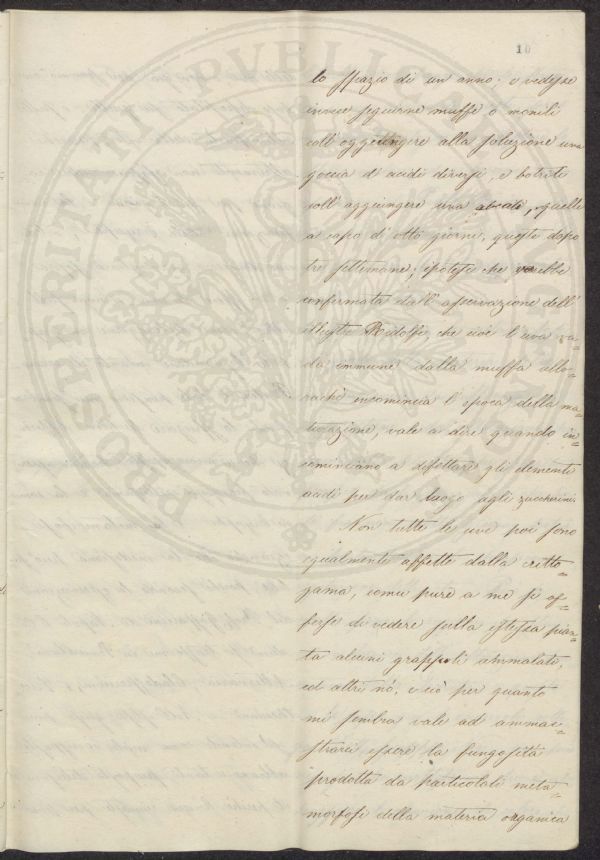 10
lo spazio di un anno. o vedesse
invece seguirne muffe o monili
coll'aggiungere alla soluzione una
goccia d'acidi diversi, e botriti
coll'aggiungere una alcali, quelle
a capo d'otto giorni, queste dopo
tre settimane; ipotesi che verebbe
confermata dall'osservazione dell'
illustre Ridolfi, che cioè l'uva va=
da immune dalla muffa allo=
rachè incomincia l'epoca della ma=
turazione, vale a dire quando in=
cominciano a difettare gli elementi
acidi per dar luogo agli zuccherini.
Non tutte le uve poi sono
egualmente affette dalla critto=
gama, come pure a me si of=
ferse di vedere sulla istessa pian=
ta alcuni grappoli ammalati,
ed altri nò, e ciò per quanto
mi sembra vale ad ammae=
strarci essere la fungosità
prodotta da particolari meta=
morfosi della materia organica
PROSPERITATI PVBLICAE